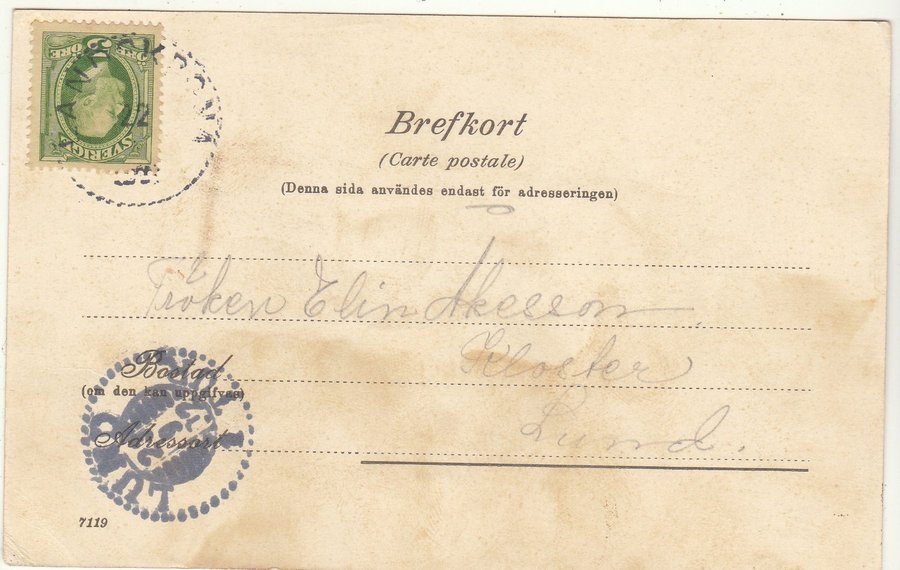 5 ÖRE ÖRE
SVERIGE
LANDSKRONA
Brefkort
(Carte postale)
(Denna sida användes endast för adresseringen)
Fröken Elin Åkesson
Kloster
Lund.
Bostad
(om den kan uppgifvas)
Adressort
LUND
7119